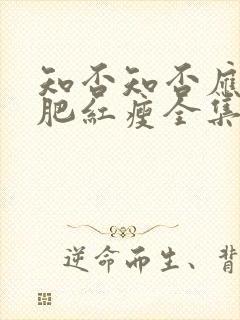 知否知否应
肥红瘦全集
逆命而生、背